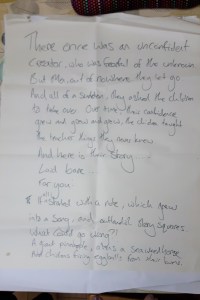 There once was an unconfident
creator, who was fearful of the unknown.
But ..., out of nowhere they let go.
And all of a sudden, they allowed the children
to take over. Over time, their confidence
grew and grew and grew, the children taught
the teacher things they never knew.
And here is their story...
Laid bare...
For you.
It all started with a note, which grew
into a song, and authentic story squares.
What could go wrong?!
A giant, a seaweed horse,
And children from their home.